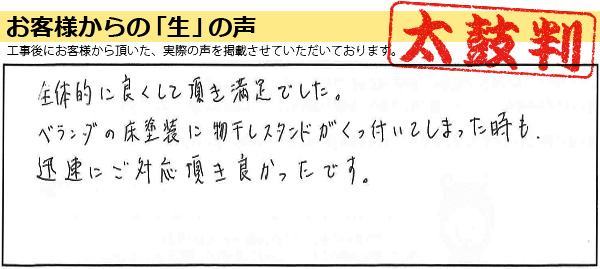 お客様からの「生」の声
工事後にお客様から頂いた、実際の声を掲載させていただいております。
太鼓判
全体的に良くして頂き満足でした。
ベランダの床塗装に物干しスタンドがくっ付いてしまった時も、
迅速にご対応頂き良かったです。